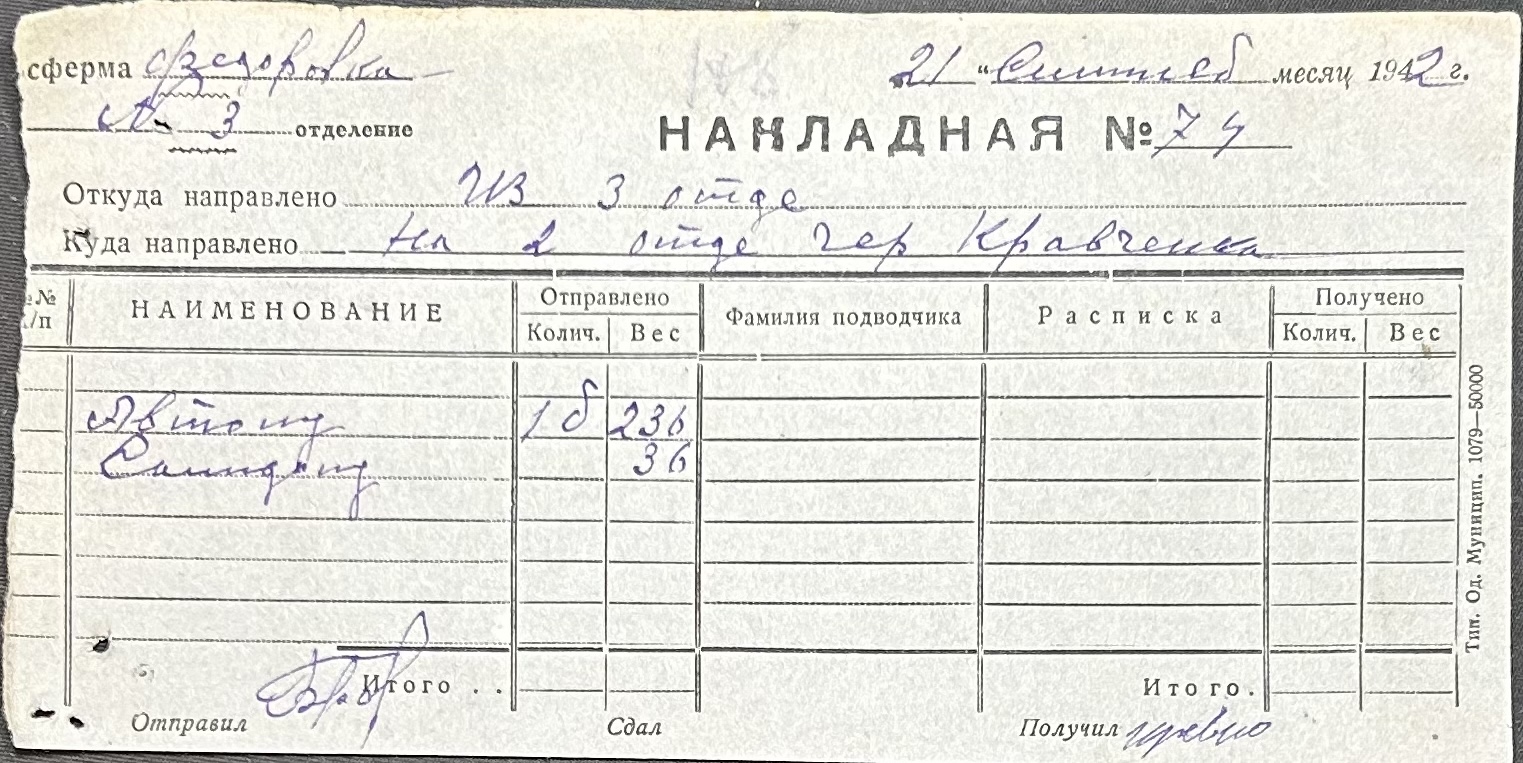 сферма Федоровка 21 " месяц 1942 г.
№ 3 отделение
НАКЛАДНАЯ № 74
Откуда направлено Из 3 отде
Куда направлено На 2 отде чер Кравченка
№№ /п НАИМЕНОВАНИЕ Отправлено Фамилия подводчика Расписка Получено
Колич. Вес Колич. Вес
Автолу 1 б 236
Солидолу 36
Итого . . Итого.
Отправил Сдал Получил
Тип. Од. Муницип. 1079—50000